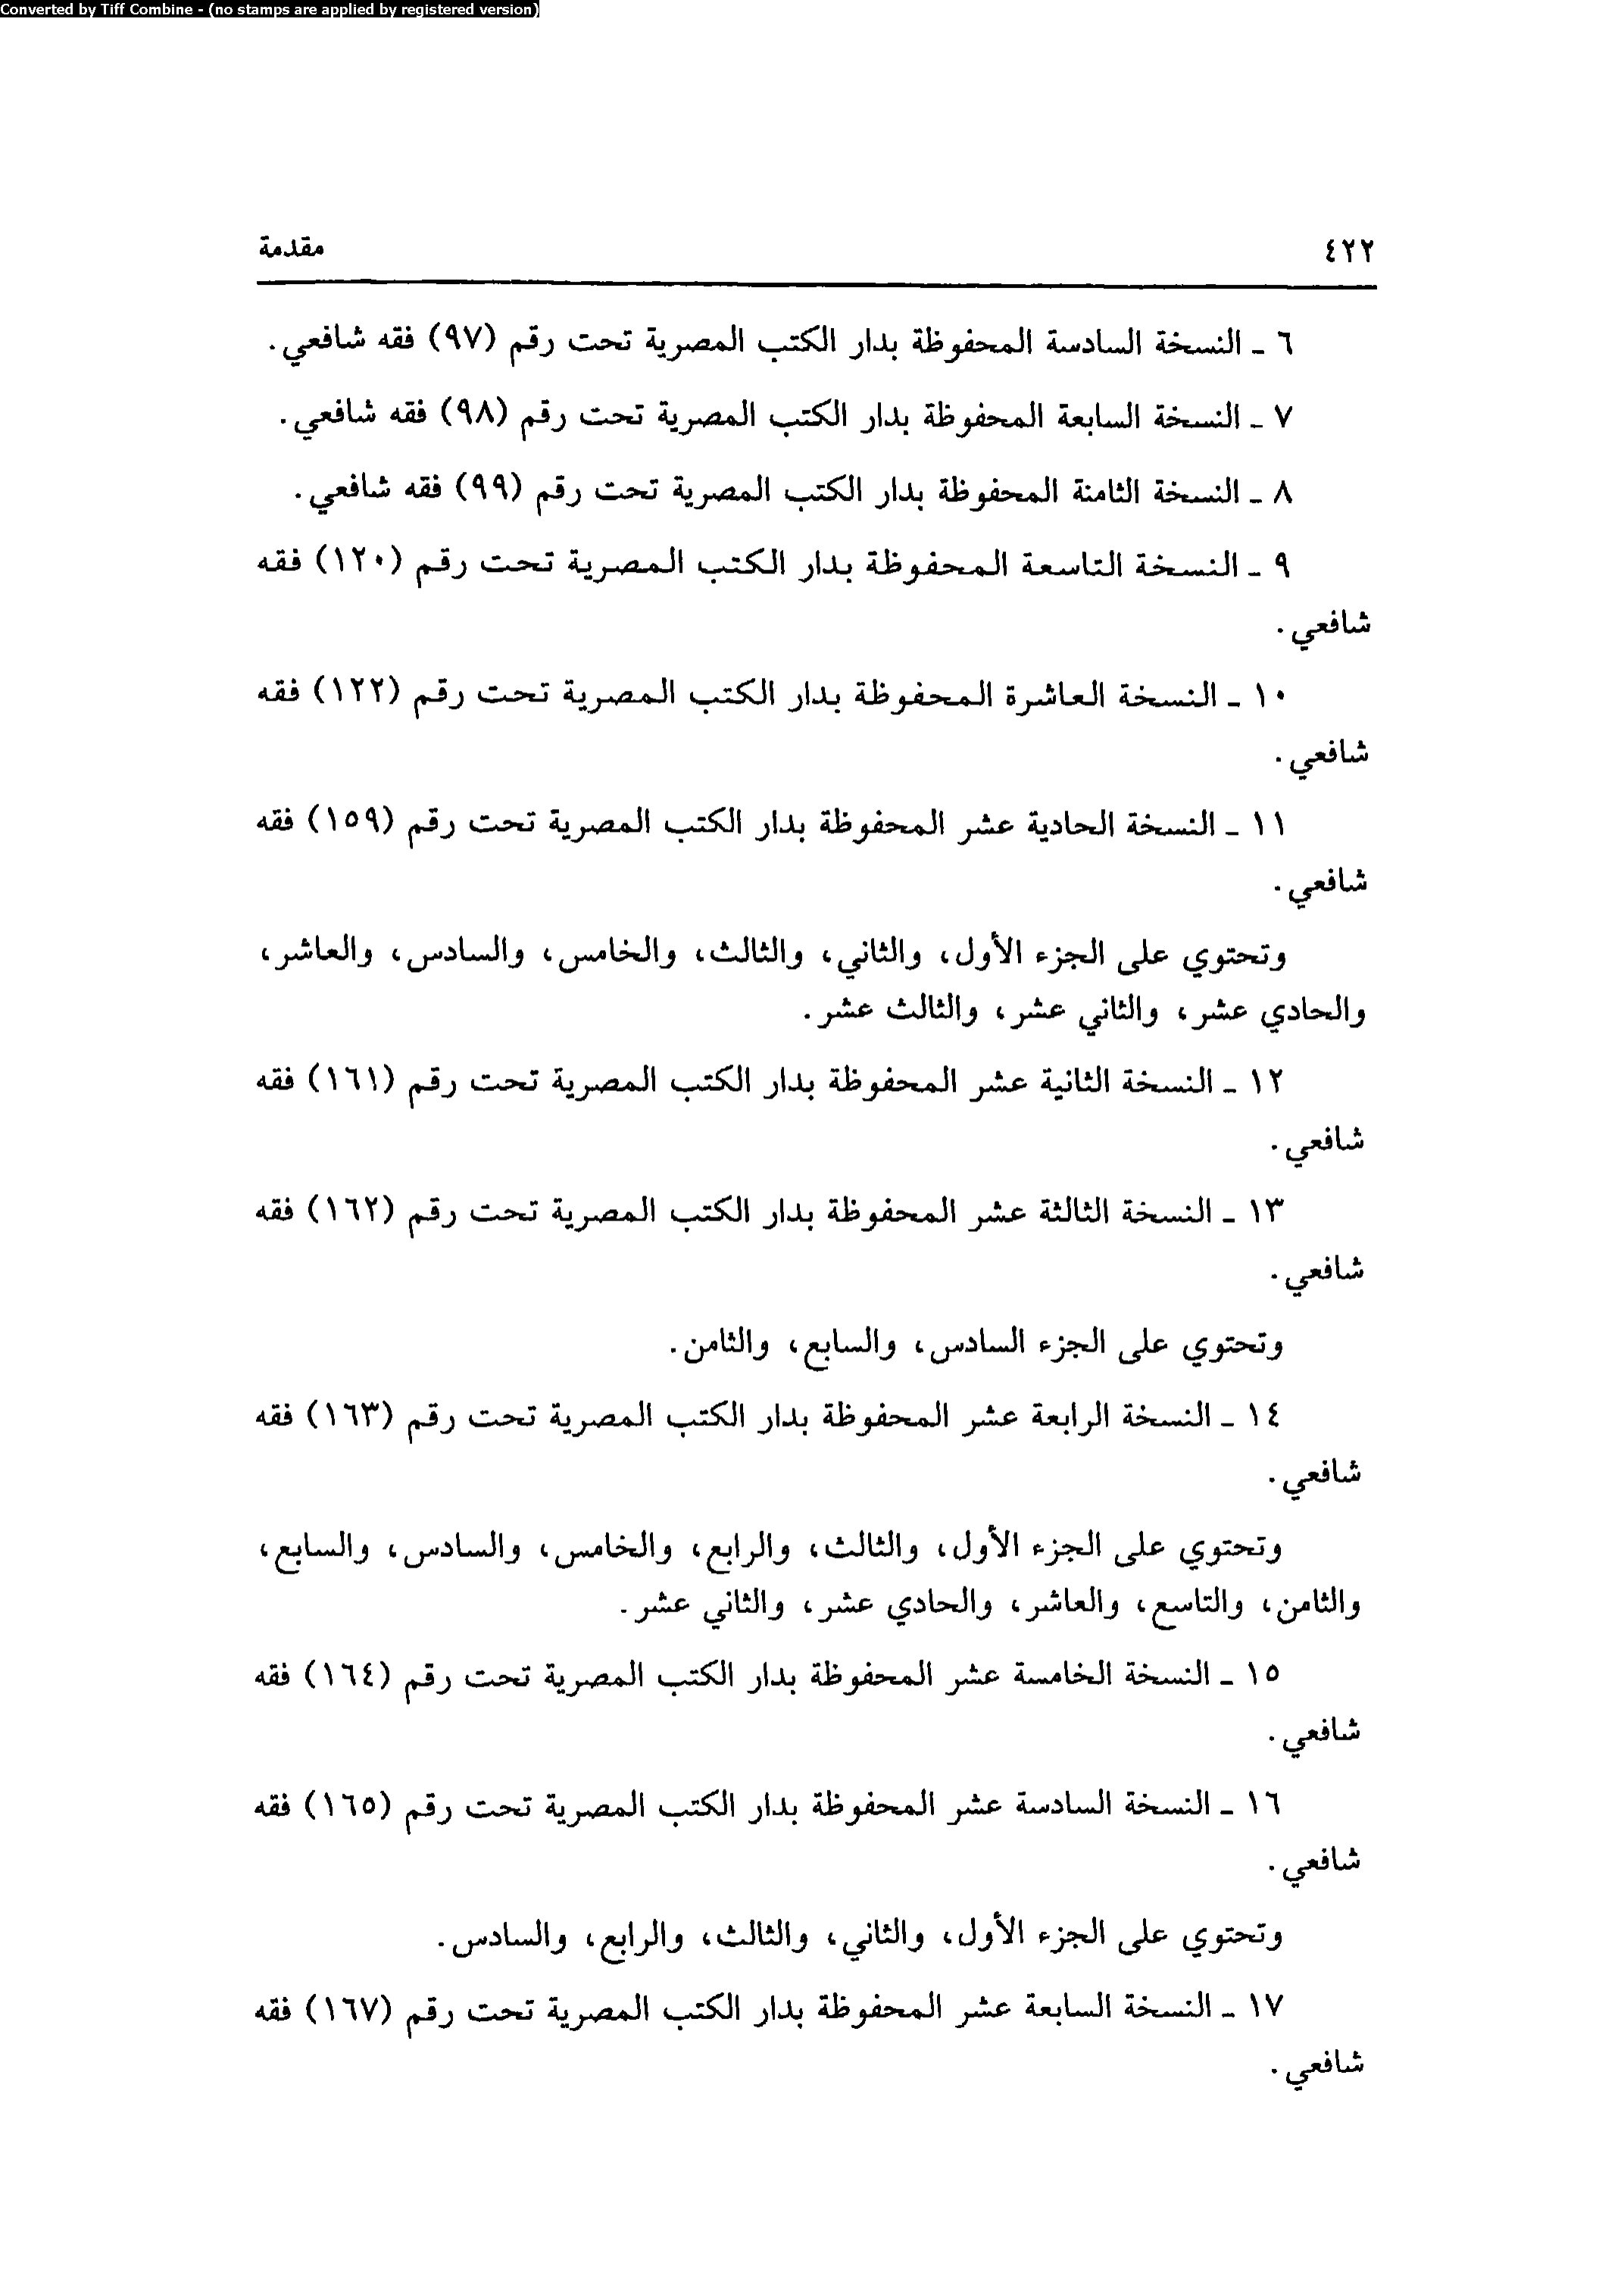 Converted by Tiff Combine - (no stamps are applied by registered version)
٤٢٢ مقدمة
٦ - النسخة السادسة المحفوظة بدار الكتب المصرية تحت رقم (٩٧) فقه شافعي.
٧ - النسخة السابعة المحفوظة بدار الكتب المصرية تحت رقم (٩٨) فقه شافعي.
٨ - النسخة الثامنة المحفوظة بدار الكتب المصرية تحت رقم (٩٩) فقه شافعي.
٩ - النسخة التاسعة المحفوظة بدار الكتب المصرية تحت رقم (١٢٠) فقه
شافعي.
١٠ - النسخة العاشرة المحفوظة بدار الكتب المصرية تحت رقم (١٢٢) فقه
شافعي.
١١ - النسخة الحادية عشر المحفوظة بدار الكتب المصرية تحت رقم (١٥٩) فقه
شافعي.
وتحتوي على الجزء الأول، والثاني، والثالث، والخامس، والسادس، والعاشر،
والحادي عشر، والثاني عشر، والثالث عشر.
١٢ - النسخة الثانية عشر المحفوظة بدار الكتب المصرية تحت رقم (١٦١) فقه
شافعي.
١٣ - النسخة الثالثة عشر المحفوظة بدار الكتب المصرية تحت رقم (١٦٢) فقه
شافعي.
وتحتوي على الجزء السادس، والسابع، والثامن.
١٤ - النسخة الرابعة عشر المحفوظة بدار الكتب المصرية تحت رقم (١٦٣) فقه
شافعي.
وتحتوي على الجزء الأول، والثالث، والرابع، والخامس، والسادس، والسابع،
والثامن، والتاسع، والعاشر، والحادي عشر، والثاني عشر.
١٥ - النسخة الخامسة عشر المحفوظة بدار الكتب المصرية تحت رقم (١٦٤) فقه
شافعي.
١٦ - النسخة السادسة عشر المحفوظة بدار الكتب المصرية تحت رقم (١٦٥) فقه
شافعي.
وتحتوي على الجزء الأول، والثاني، والثالث، والرابع، والسادس.
١٧ - النسخة السابعة عشر المحفوظة بدار الكتب المصرية تحت رقم (١٦٧) فقه
شافعي.